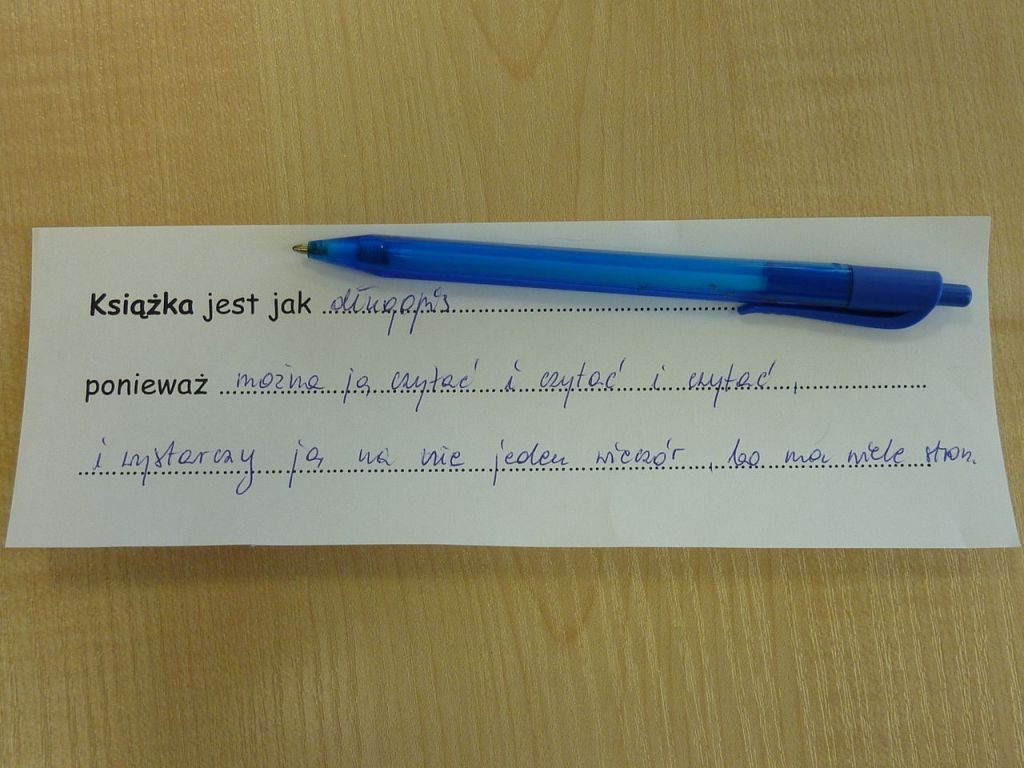 Książka jest jak długopis
ponieważ można ją czytać i czytać i czytać,
i wystarczy ją na nie jeden wieczór, bo ma wiele stron.